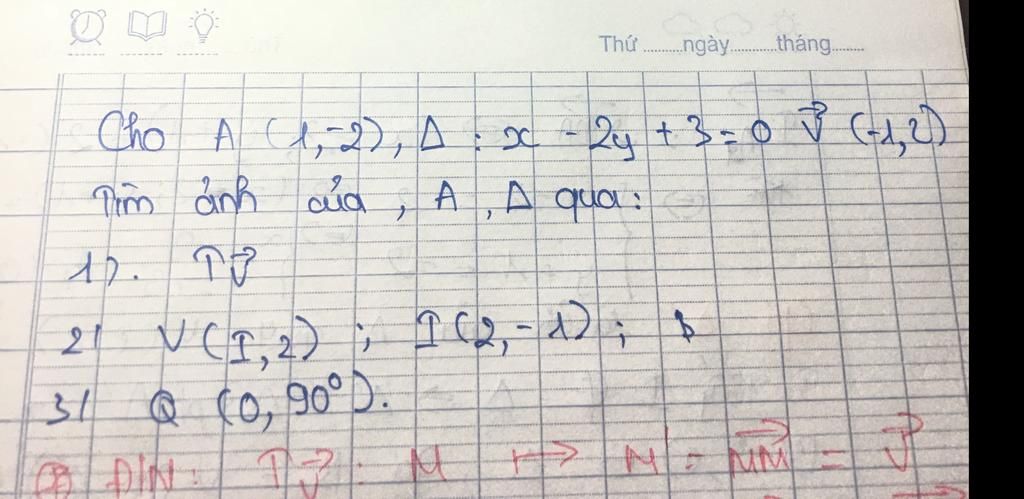 Thứ..........ngày..........tháng.......
Cho A (1,-2), Δ : x - 2y + 3 = 0 v⃗ (-1,2)
Tìm ảnh của , A , Δ qua:
1). Tv⃗
2/ V(I,2) ; I(2,-1) ;
3/ Q (0, 90°).
ĐN: Tv⃗ : M ↦ M' = MM⃗ = v⃗